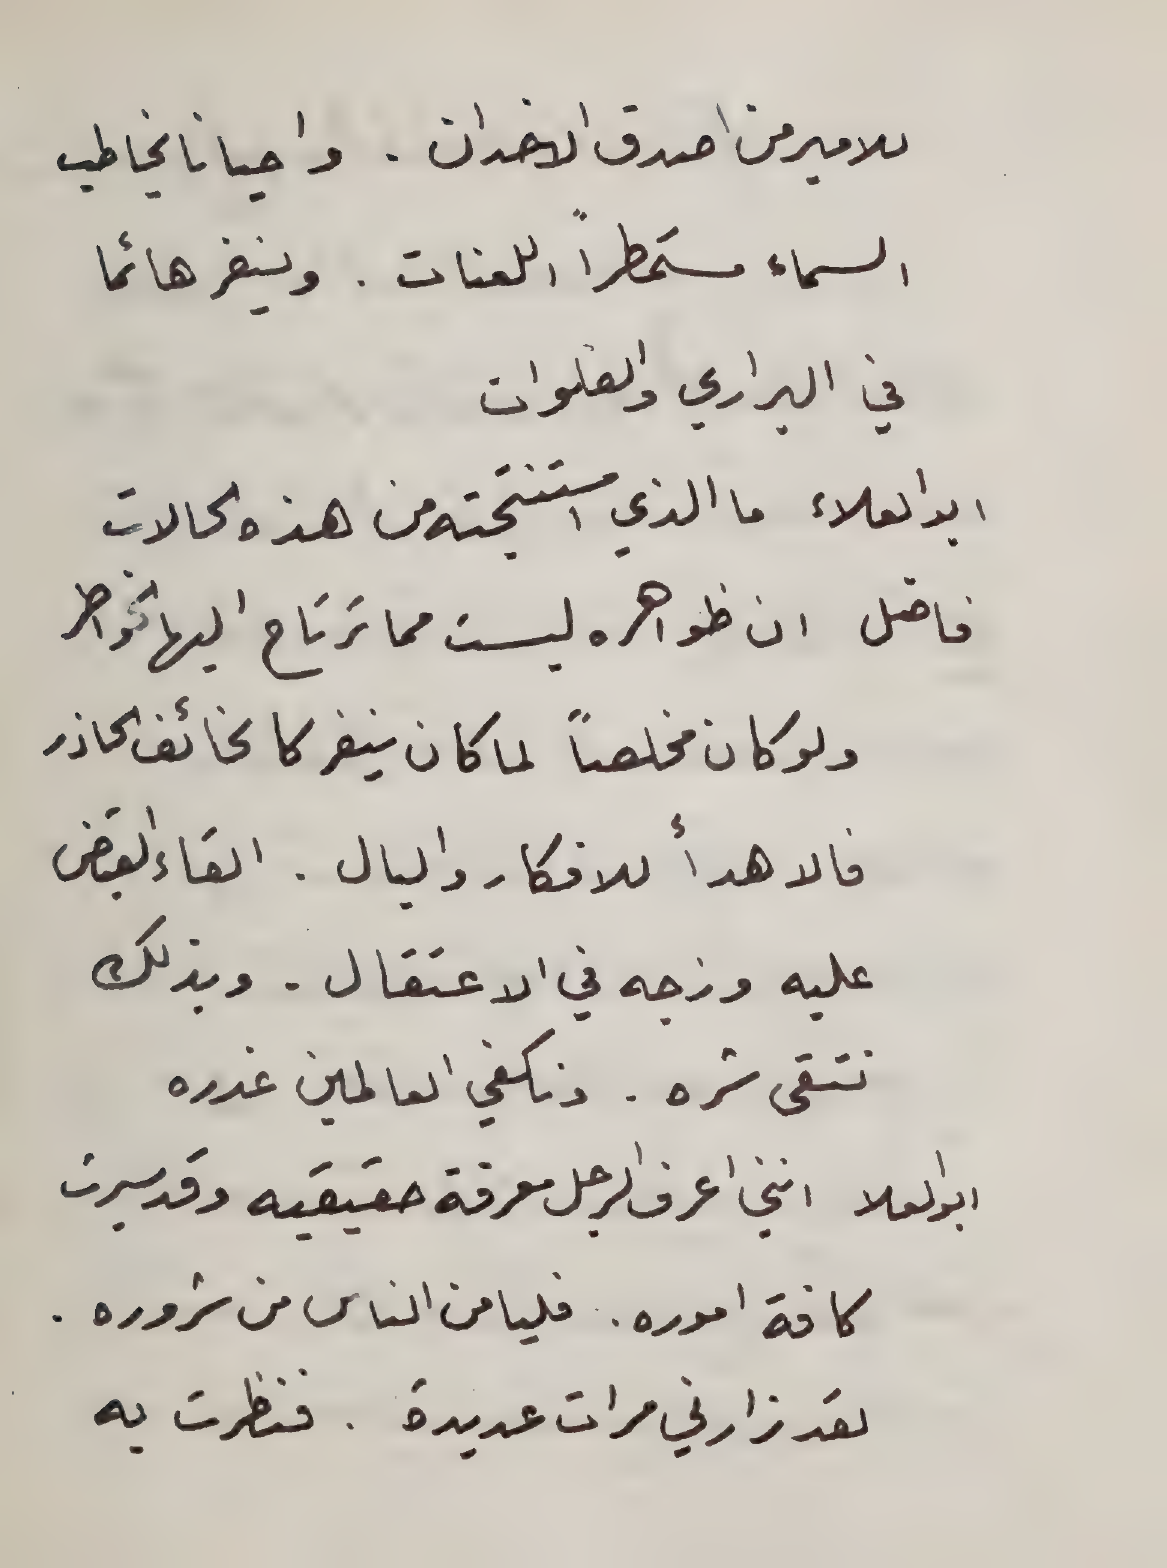 للامير من اصدق الاخدان . واحيانا يخاطب
السماء مستمطراً اللعنات . وينفر هائما
في البراري والفلوات
ابو العلاء ما الذي استنتجته من هذه الحالات
فاضل ان ظواهره ليست مما ترتاح اليها الخواطر
ولو كان مخلصاً لما كان ينفر كالخائف الحاذر
فالاهدأ للافكار والبال . القاء القبض
عليه وزجه في الاعتقال . وبذلك
نتقى شره . ونكفي العالمين غدره
ابو العلا انني اعرف الرجل معرفة حقيقيه وقد سبرت
كافة اموره . فليامن الناس من شروره .
لقد زارني مرات عديدة . فنظرت به